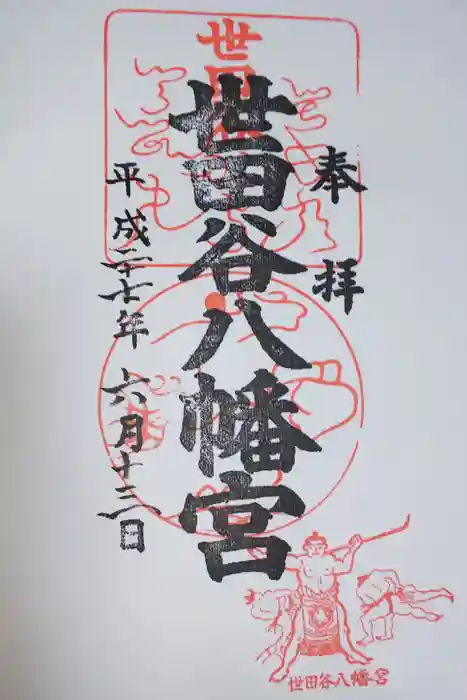 奉拝
世田谷八幡宮
平成二十七年六月十三日
世田
世田谷八幡宮